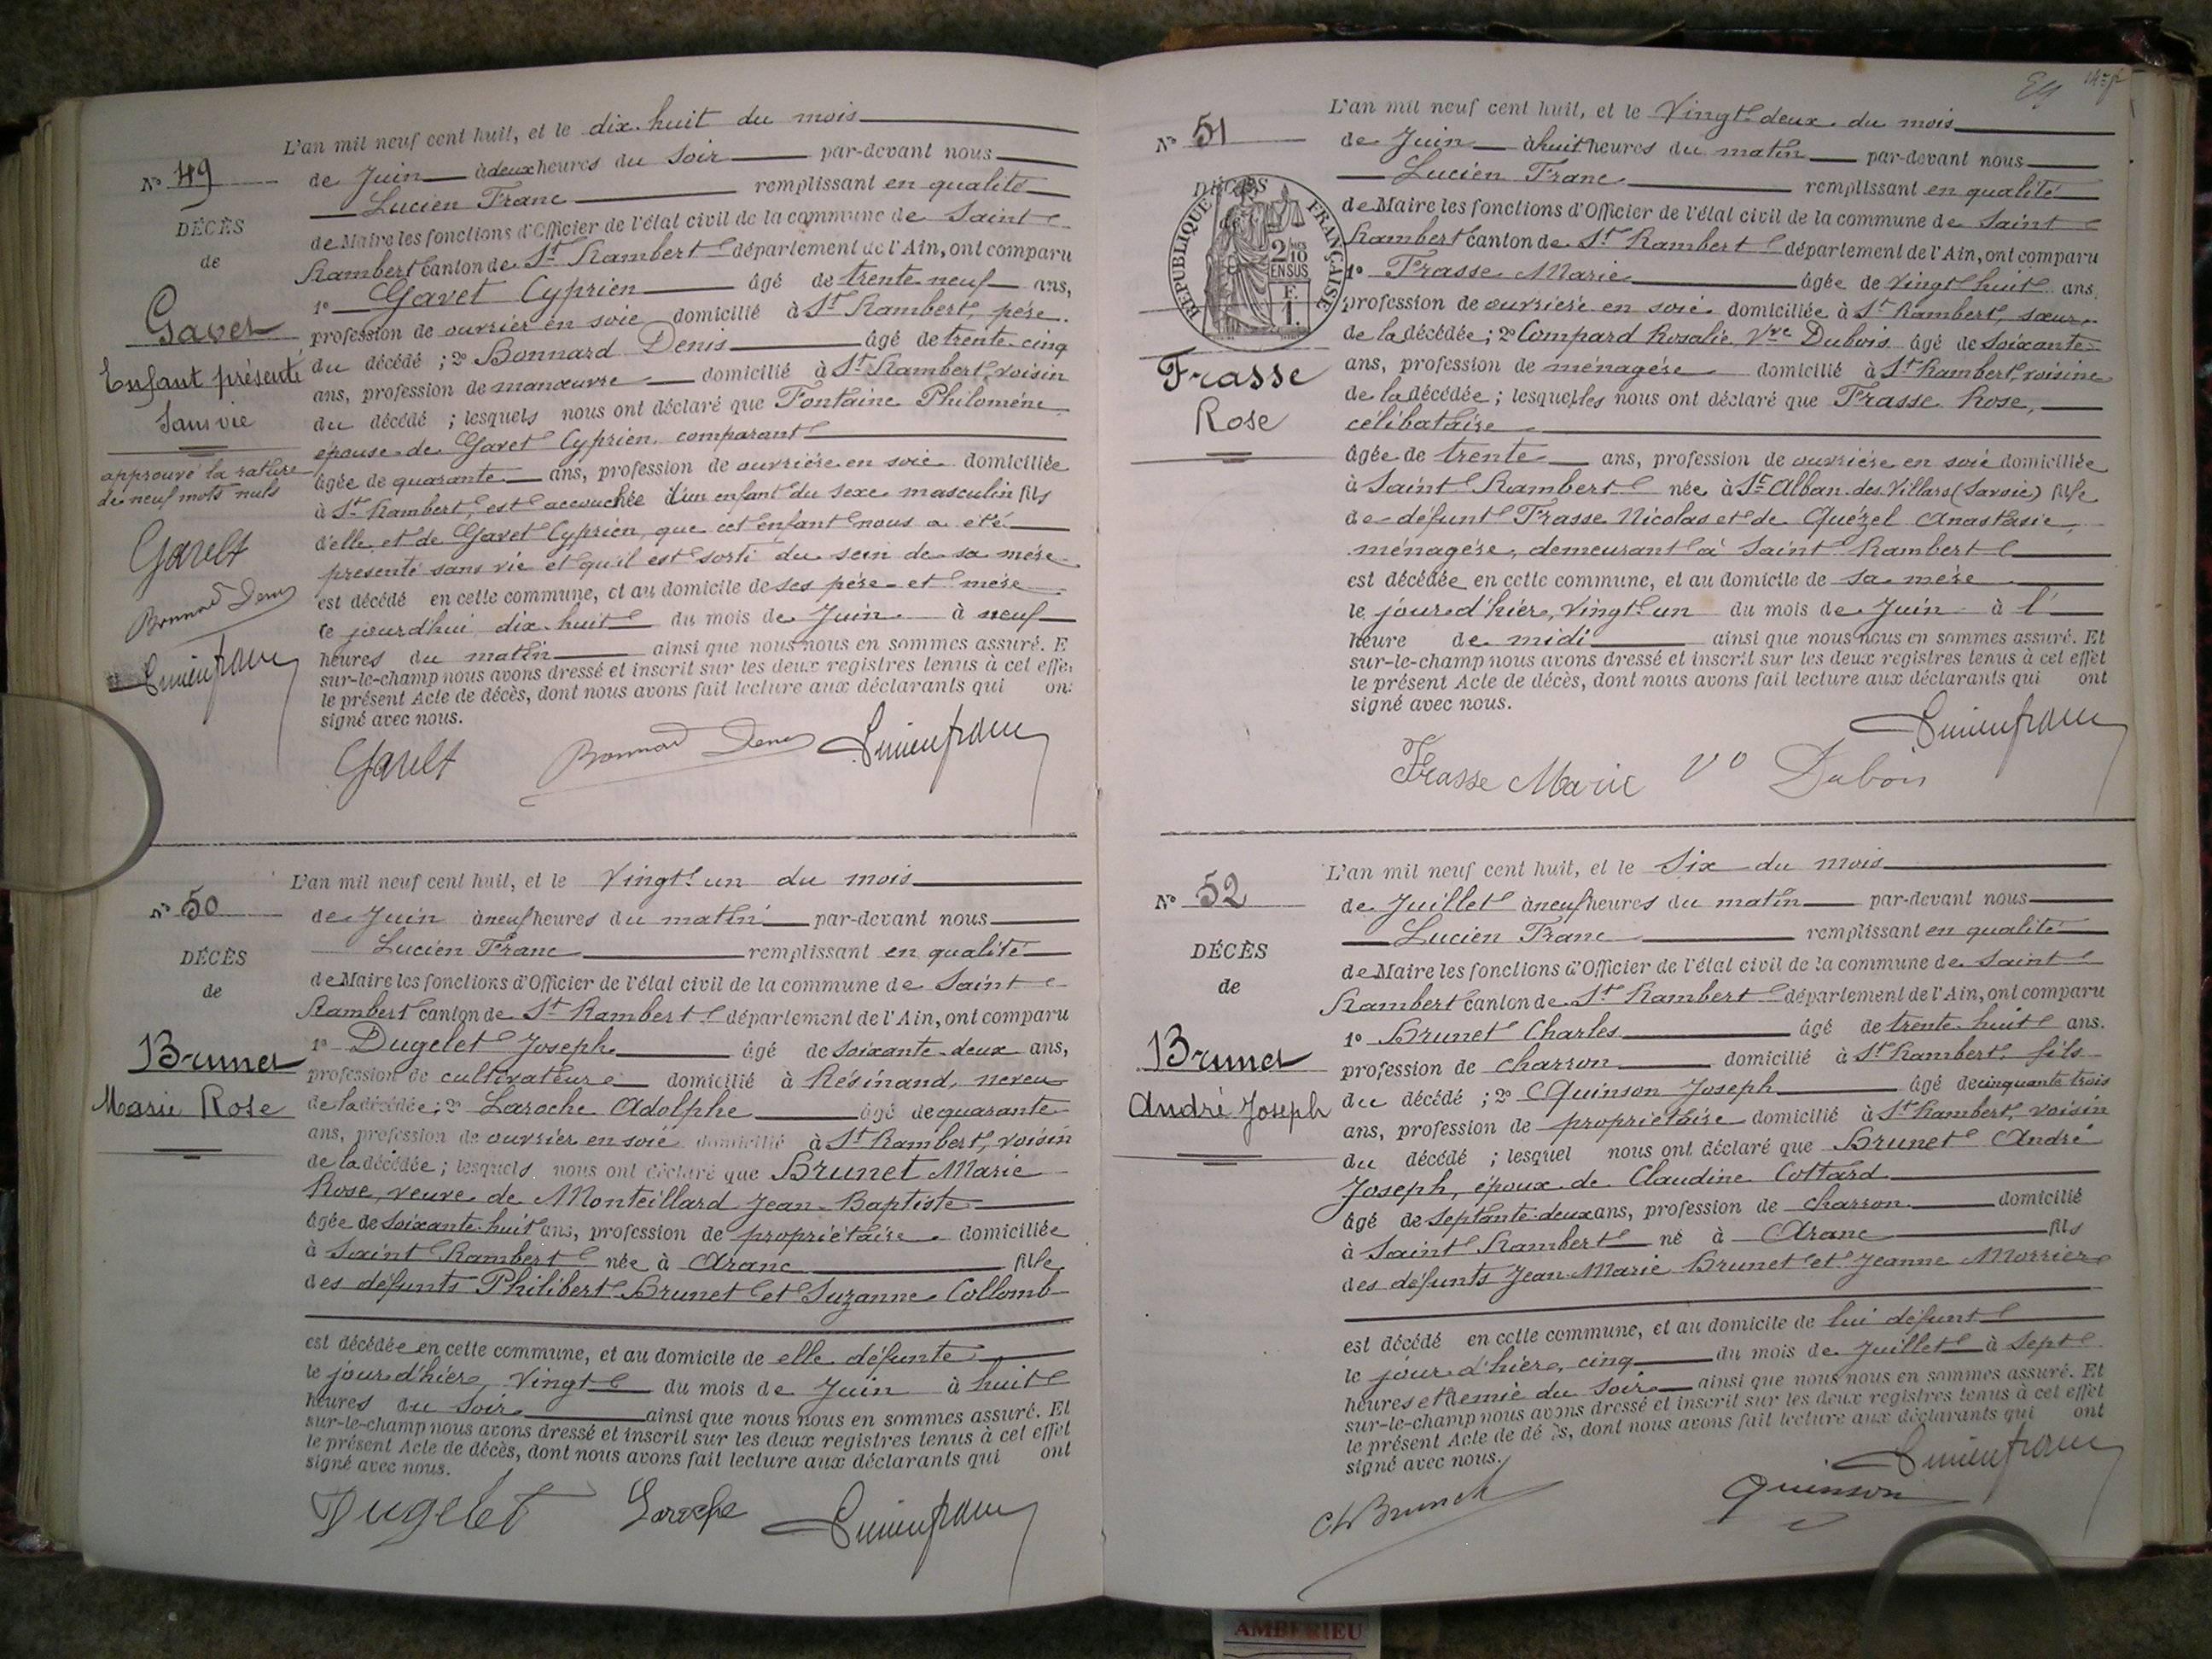 L'an mil neuf cent huit, et le dix-huit du mois
Nº 49
de Juin à deux heures du soir par-devant nous
Lucien Franc remplissant en qualité
DÉCÈS
de Maire les fonctions d'Officier de l'état civil de la commune de Saint
de
Rambert canton de St Rambert département de l'Ain, ont comparu
1º Gavet Cyprien âgé de trente neuf ans,
Gavet
profession de ouvrier en soie domicilié à St Rambert, père
du décédé ; 2º Bonnard Denis âgé de trente-cinq
Enfant présenté
ans, profession de manœuvre domicilié à St Rambert, voisin
Sans vie
du décédé ; lesquels nous ont déclaré que Fontaine Philomène
épouse de Gavet Cyprien, comparant
approuvé la rature
âgée de quarante ans, profession de ouvrière en soie domiciliée
de neuf mots nuls
à St Rambert, est accouchée d'un enfant du sexe masculin fils
d'elle et de Gavet Cyprien, que cet enfant nous a été
Bonnard Denis
présenté sans vie et qu'il est sorti du sein de sa mère
est décédé en cette commune, et au domicile de ses père et mère
le jourd'hui dix-huit du mois de Juin à neuf
heures du matin ainsi que nous nous en sommes assuré. E
sur-le-champ nous avons dressé et inscrit sur les deux registres tenus à cet effe
le présent Acte de décès, dont nous avons fait lecture aux déclarants qui on
signé avec nous.
Bonnard Denis Lucien franc
L'an mil neuf cent huit, et le Vingt un du mois
Nº 50
de Juin à neuf heures du matin par-devant nous
Lucien Franc remplissant en qualité
DÉCÈS
de Maire les fonctions d'Officier de l'état civil de la commune de Saint
de
Rambert canton de St Rambert département de l'Ain, ont comparu
1º Dugelet Joseph âgé de soixante-deux ans,
Brunet
profession de cultivateur domicilié à Résinand, neveu
Marie Rose
de la décédée ; 2º Laroche Adolphe âgé de quarante
ans, profession de ouvrier en soie domicilié à St Rambert, voisin
de la décédée ; lesquels nous ont déclaré que Brunet Marie
Rose, veuve de Monteillard Jean-Baptiste
âgée de soixante-huit ans, profession de propriétaire domiciliée
à Saint Rambert née à Aranc fille
des défunts Philibert Brunet et Suzanne Collomb
est décédée en cette commune, et au domicile de elle défunte
le jour d'hier, Vingt du mois de Juin à huit
heures du soir ainsi que nous nous en sommes assuré. Et
sur-le-champ nous avons dressé et inscrit sur les deux registres tenus à cet effet
le présent Acte de décès, dont nous avons fait lecture aux déclarants qui ont
signé avec nous.
Dugelet Laroche Lucien franc
L'an mil neuf cent huit, et le Vingt-deux du mois
Nº 51
de Juin à huit heures du matin par-devant nous
Lucien Franc remplissant en qualité
DÉCÈS
RÉPUBLIQUE FRANÇAISE
2/10 MES
EN SUS
F.
1.
de Maire les fonctions d'Officier de l'état civil de la commune de Saint
Rambert canton de St Rambert département de l'Ain, ont comparu
1º Frasse Marie âgée de vingt huit ans,
profession de ouvrière en soie domiciliée à St Rambert, sœur
de la décédée ; 2º Compard Rosalie Vve Dubois âgé de soixante
Frasse
ans, profession de ménagère domicilié à St Rambert, voisine
Rose
de la décédée ; lesquelles nous ont déclaré que Frasse Rose,
célibataire
âgée de trente ans, profession de ouvrière en soie domiciliée
à Saint Rambert née à St Alban des Villars (Savoie) fille
de défunt Frasse Nicolas et de Quézel Anastasie,
ménagère, demeurant à Saint Rambert
est décédée en cette commune, et au domicile de sa mère
le jour d'hier, vingt un du mois de Juin à l'
heure de midi ainsi que nous nous en sommes assuré. Et
sur-le-champ nous avons dressé et inscrit sur les deux registres tenus à cet effet
le présent Acte de décès, dont nous avons fait lecture aux déclarants qui ont
signé avec nous.
Lucien franc
Frasse Marie Ve Dubois
L'an mil neuf cent huit, et le Six du mois
Nº 52
de Juillet à neuf heures du matin par-devant nous
Lucien Franc remplissant en qualité
DÉCÈS
de Maire les fonctions d'Officier de l'état civil de la commune de Saint
de
Rambert canton de St Rambert département de l'Ain, ont comparu
1º Brunet Charles âgé de trente-huit ans.
Brunet
profession de charron domicilié à St Rambert, fils
André Joseph
du décédé ; 2º Quinson Joseph âgé de cinquante trois
ans, profession de propriétaire domicilié à St Rambert, voisin
du décédé ; lesquel nous ont déclaré que Brunet André
Joseph, époux de Claudine Cottard
âgé de septante-deux ans, profession de charron domicilié
à Saint Rambert né à Aranc fils
des défunts Jean-Marie Brunet et Jeanne Morrier
est décédé en cette commune, et au domicile de lui défunt
le jour d'hier, cinq du mois de Juillet à sept
heures et demie du soir ainsi que nous nous en sommes assuré. Et
sur-le-champ nous avons dressé et inscrit sur les deux registres tenus à cet effet
le présent Acte de décès, dont nous avons fait lecture aux déclarants qui ont
signé avec nous.
Lucien franc
Ch Brunet Quinson
AMBERIEU